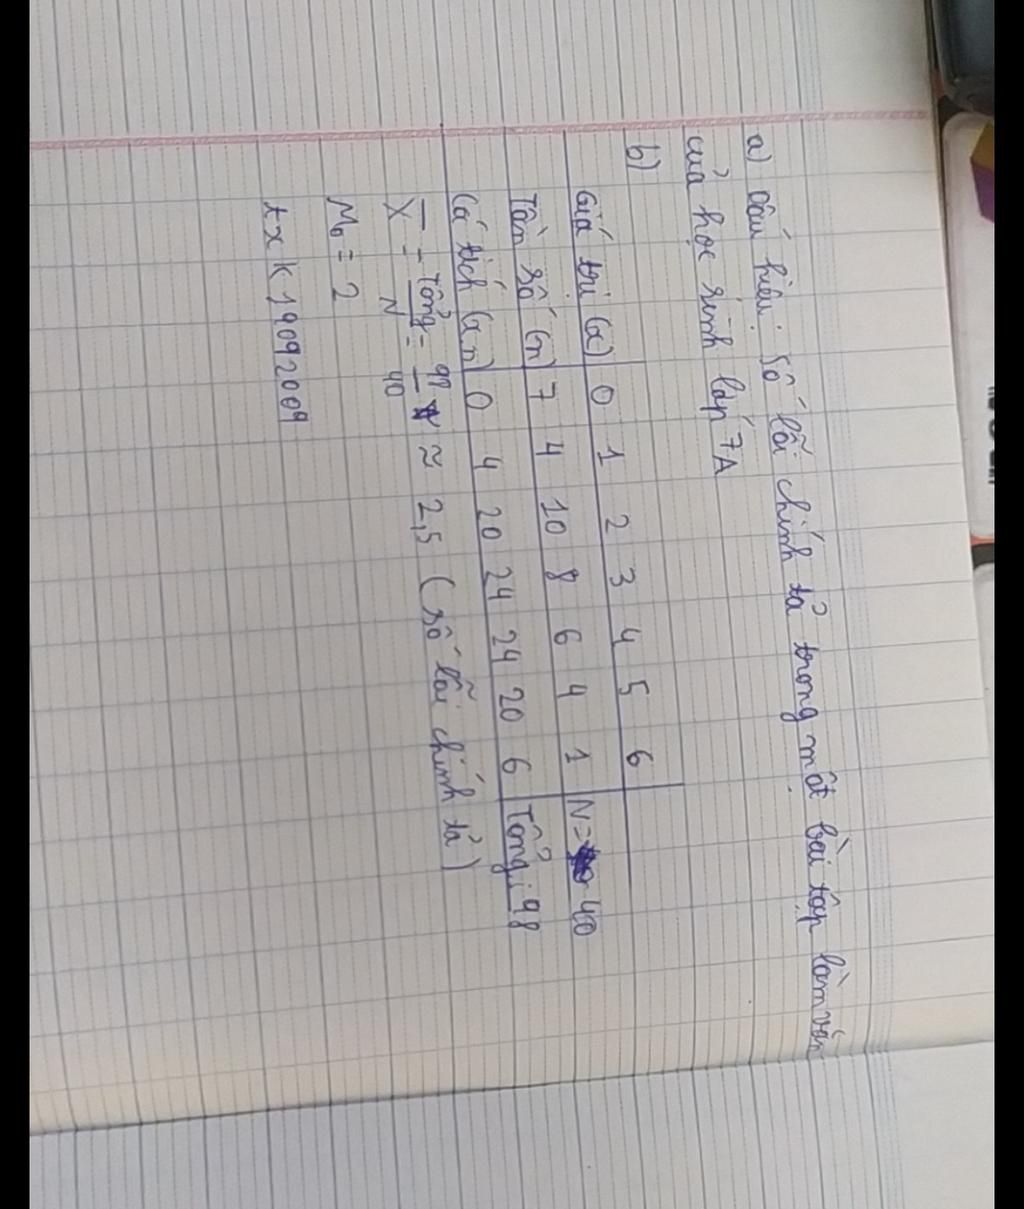 a) Dấu hiệu: Số lỗi chính tả trong một bài tập làm văn
của học sinh lớp 7A
b)
Giá trị (x) 0 1 2 3 4 5 6
Tần số (n) 7 4 10 8 6 4 1 N= 40
Cá tích (x n) 0 4 20 24 24 20 6 Tổng: 98
X̄ = Tổng/N = 98/40 ≈ 2,5 (số lỗi chính tả)
M₀ = 2
txk 19092009